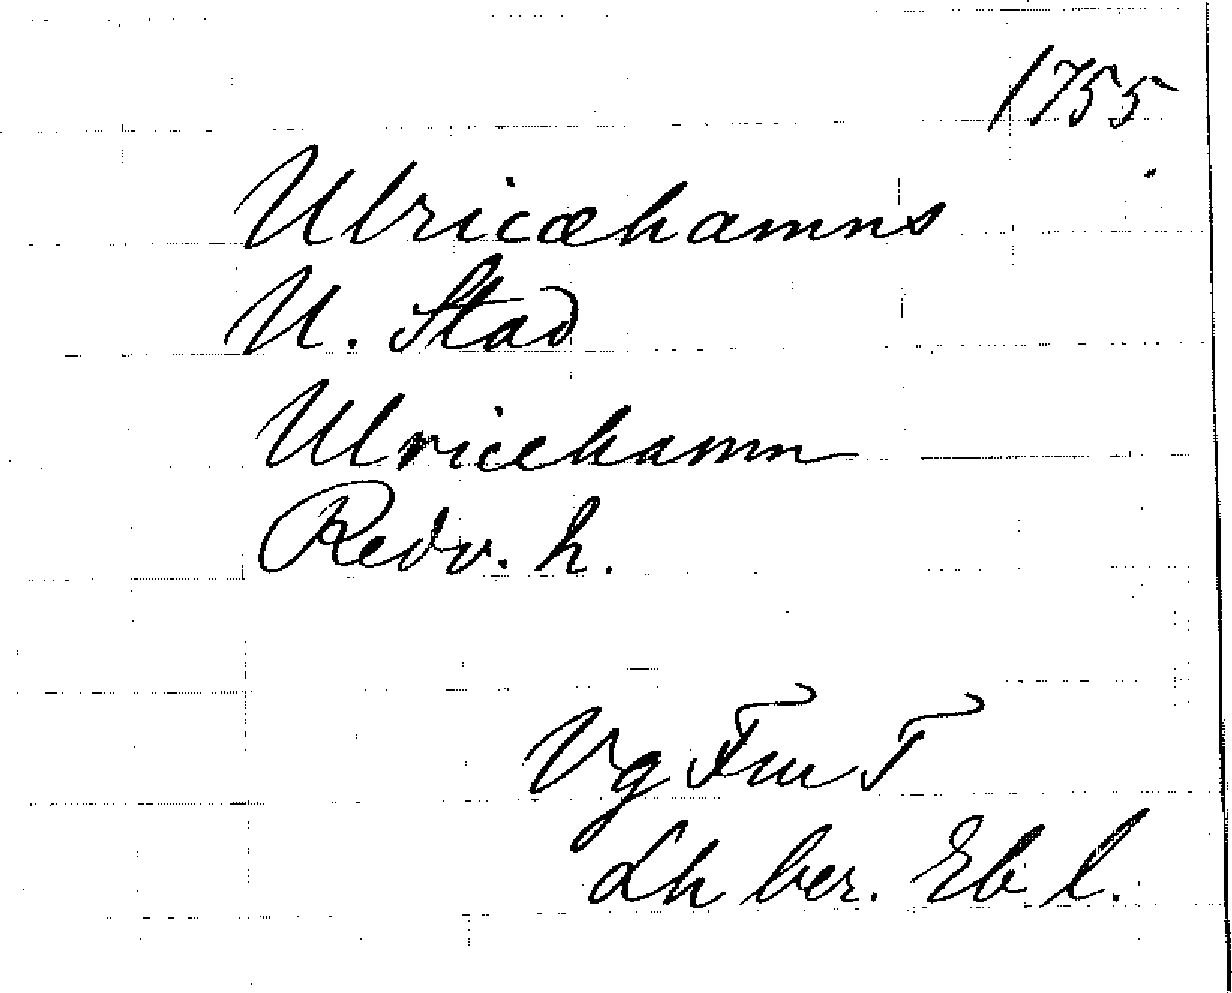 1755
Ulricæhamns
U. Stad
Ulricehamn
Redv. h.
Vg Fm T
Lh ber. Eb l.